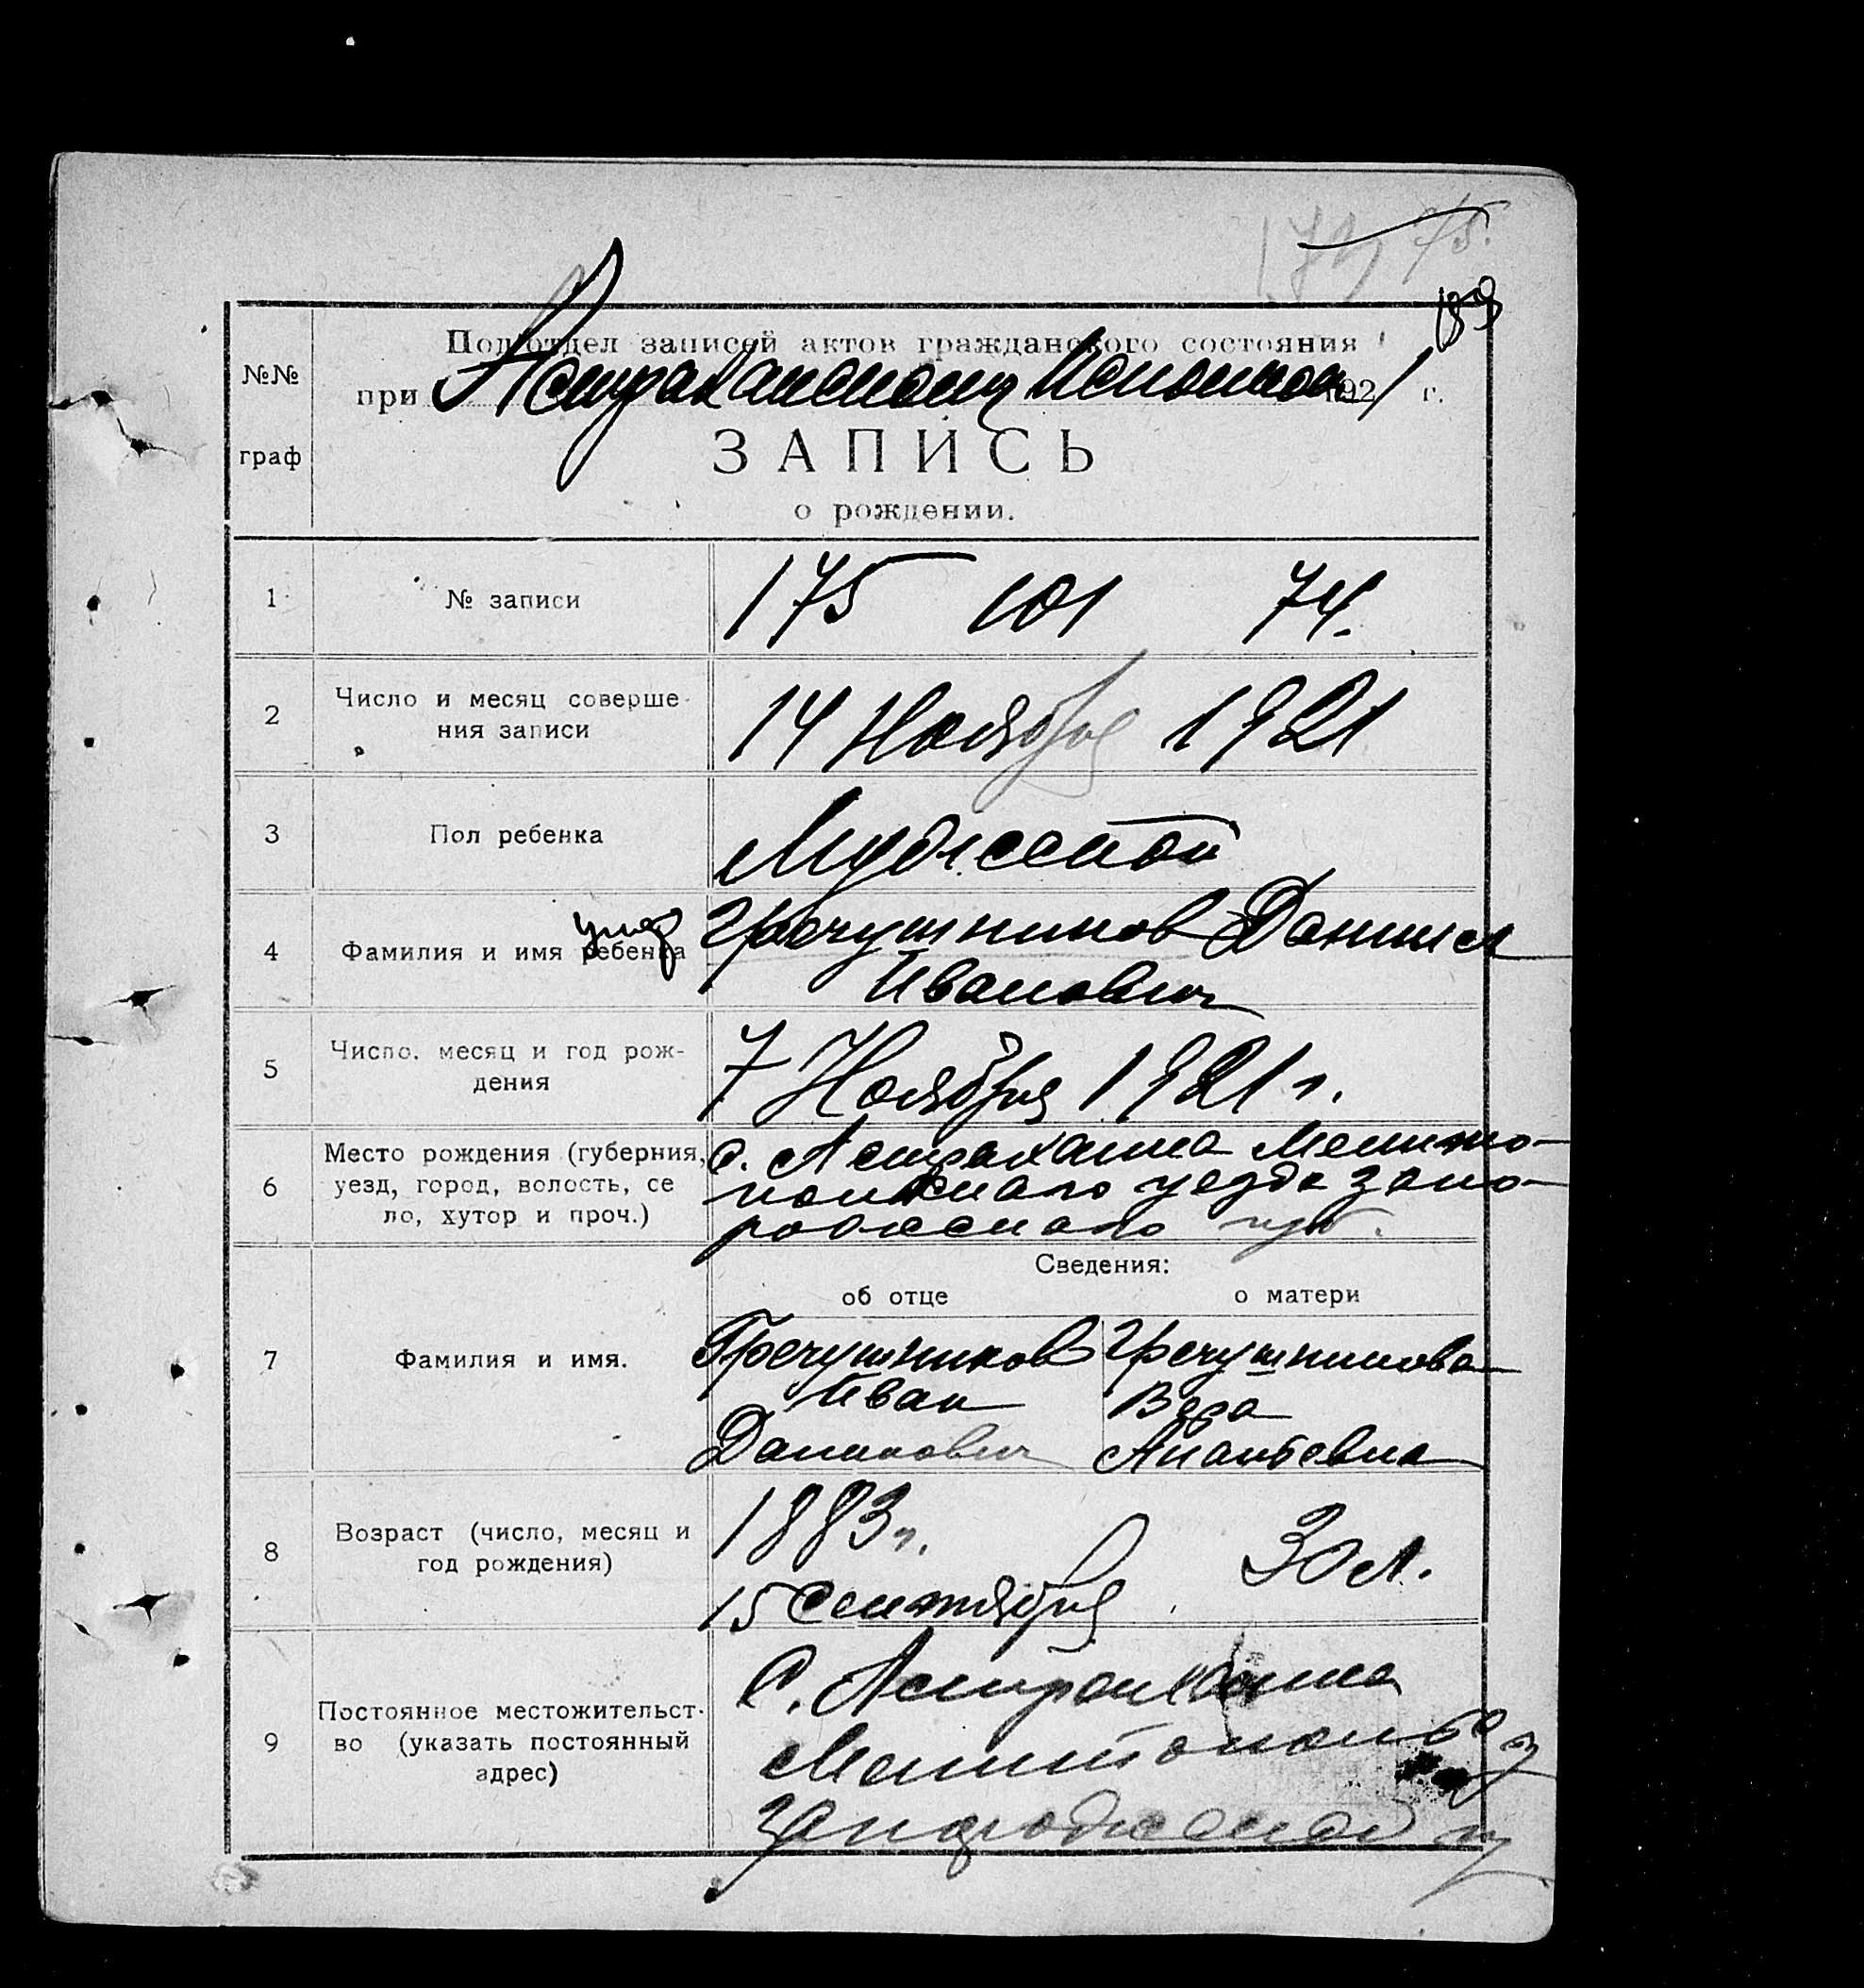 179 75.
189
№№
граф
Подотдел записей актов гражданского состояния
при Астраханском Исполком 1921 г.
ЗАПИСЬ
о рождении.
1 № записи 175 101 74.
2 Число и месяц соверше-
ния записи
14 Ноября 1921
3 Пол ребенка Мужской
умер
4 Фамилия и имя ребенка
Гречушников Даниил
Иванович
5 Число, месяц и год рож-
дения
7 Ноября 1921 г.
6 Место рождения (губерния,
уезд, город, волость, се
ло, хутор и проч.)
с. Астраханка Мелито-
польскаго уезда Запо-
рожскаго губ.
Сведения:
об отце о матери
7 Фамилия и имя.
Гречушников
Иван
Данилович
Гречушникова
Вера
Ананьевна
8 Возраст (число, месяц и
год рождения)
1883 г.
15 Сентября
30 л.
9 Постоянное местожительст-
во (указать постоянный
адрес)
С. Астраханка
Мелитопольс у
Запорожской гу